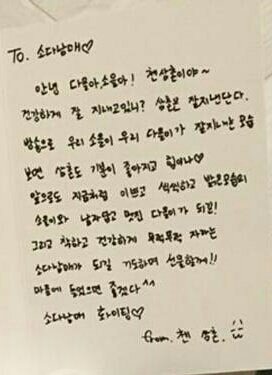 To. 소다남매♡
안녕 다을아, 소을아! 첸삼촌이야~
건강하게 잘 지내고있니? 삼촌은 잘지낸단다.
방송으로 우리 소을이 우리 다을이가 잘지내는 모습
보면 삼촌도 기분이 좋아지고 힘이나♡
앞으로도 지금처럼 이쁘고 씩씩하고 밝은모습의
소을이와 남자답고 멋진 다을이가 되길!
그리고 착하고 건강하게 무럭무럭 자라는
소다남매가 되길 기도하며 선물할게!!
마음에 들었으면 좋겠다^^
소다남매 화이팅♡
from. 첸 삼촌.